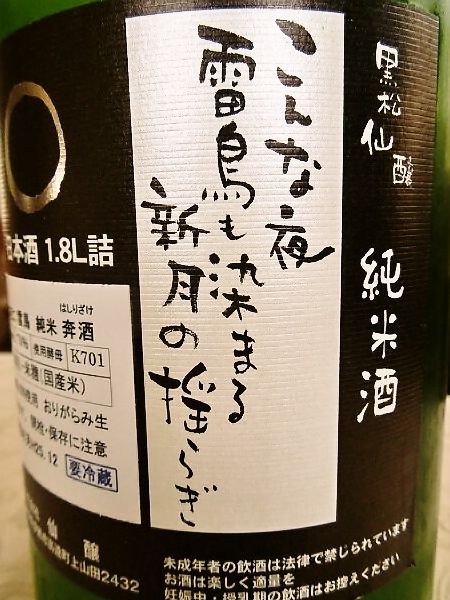 黒松仙醸
純米酒
こんな夜
雷鳥も染まる
新月の揺らぎ
日本酒 1.8L詰
はしりざけ
雷鳥 純米 奔酒
使用酵母 K701
(国産米)
おりがらみ生
開栓・保存に注意
25.12 要冷蔵
仙醸
町上山田2432
未成年者の飲酒は法律で禁じられています
お酒は楽しく適量を
妊娠中・授乳期の飲酒はお控えください